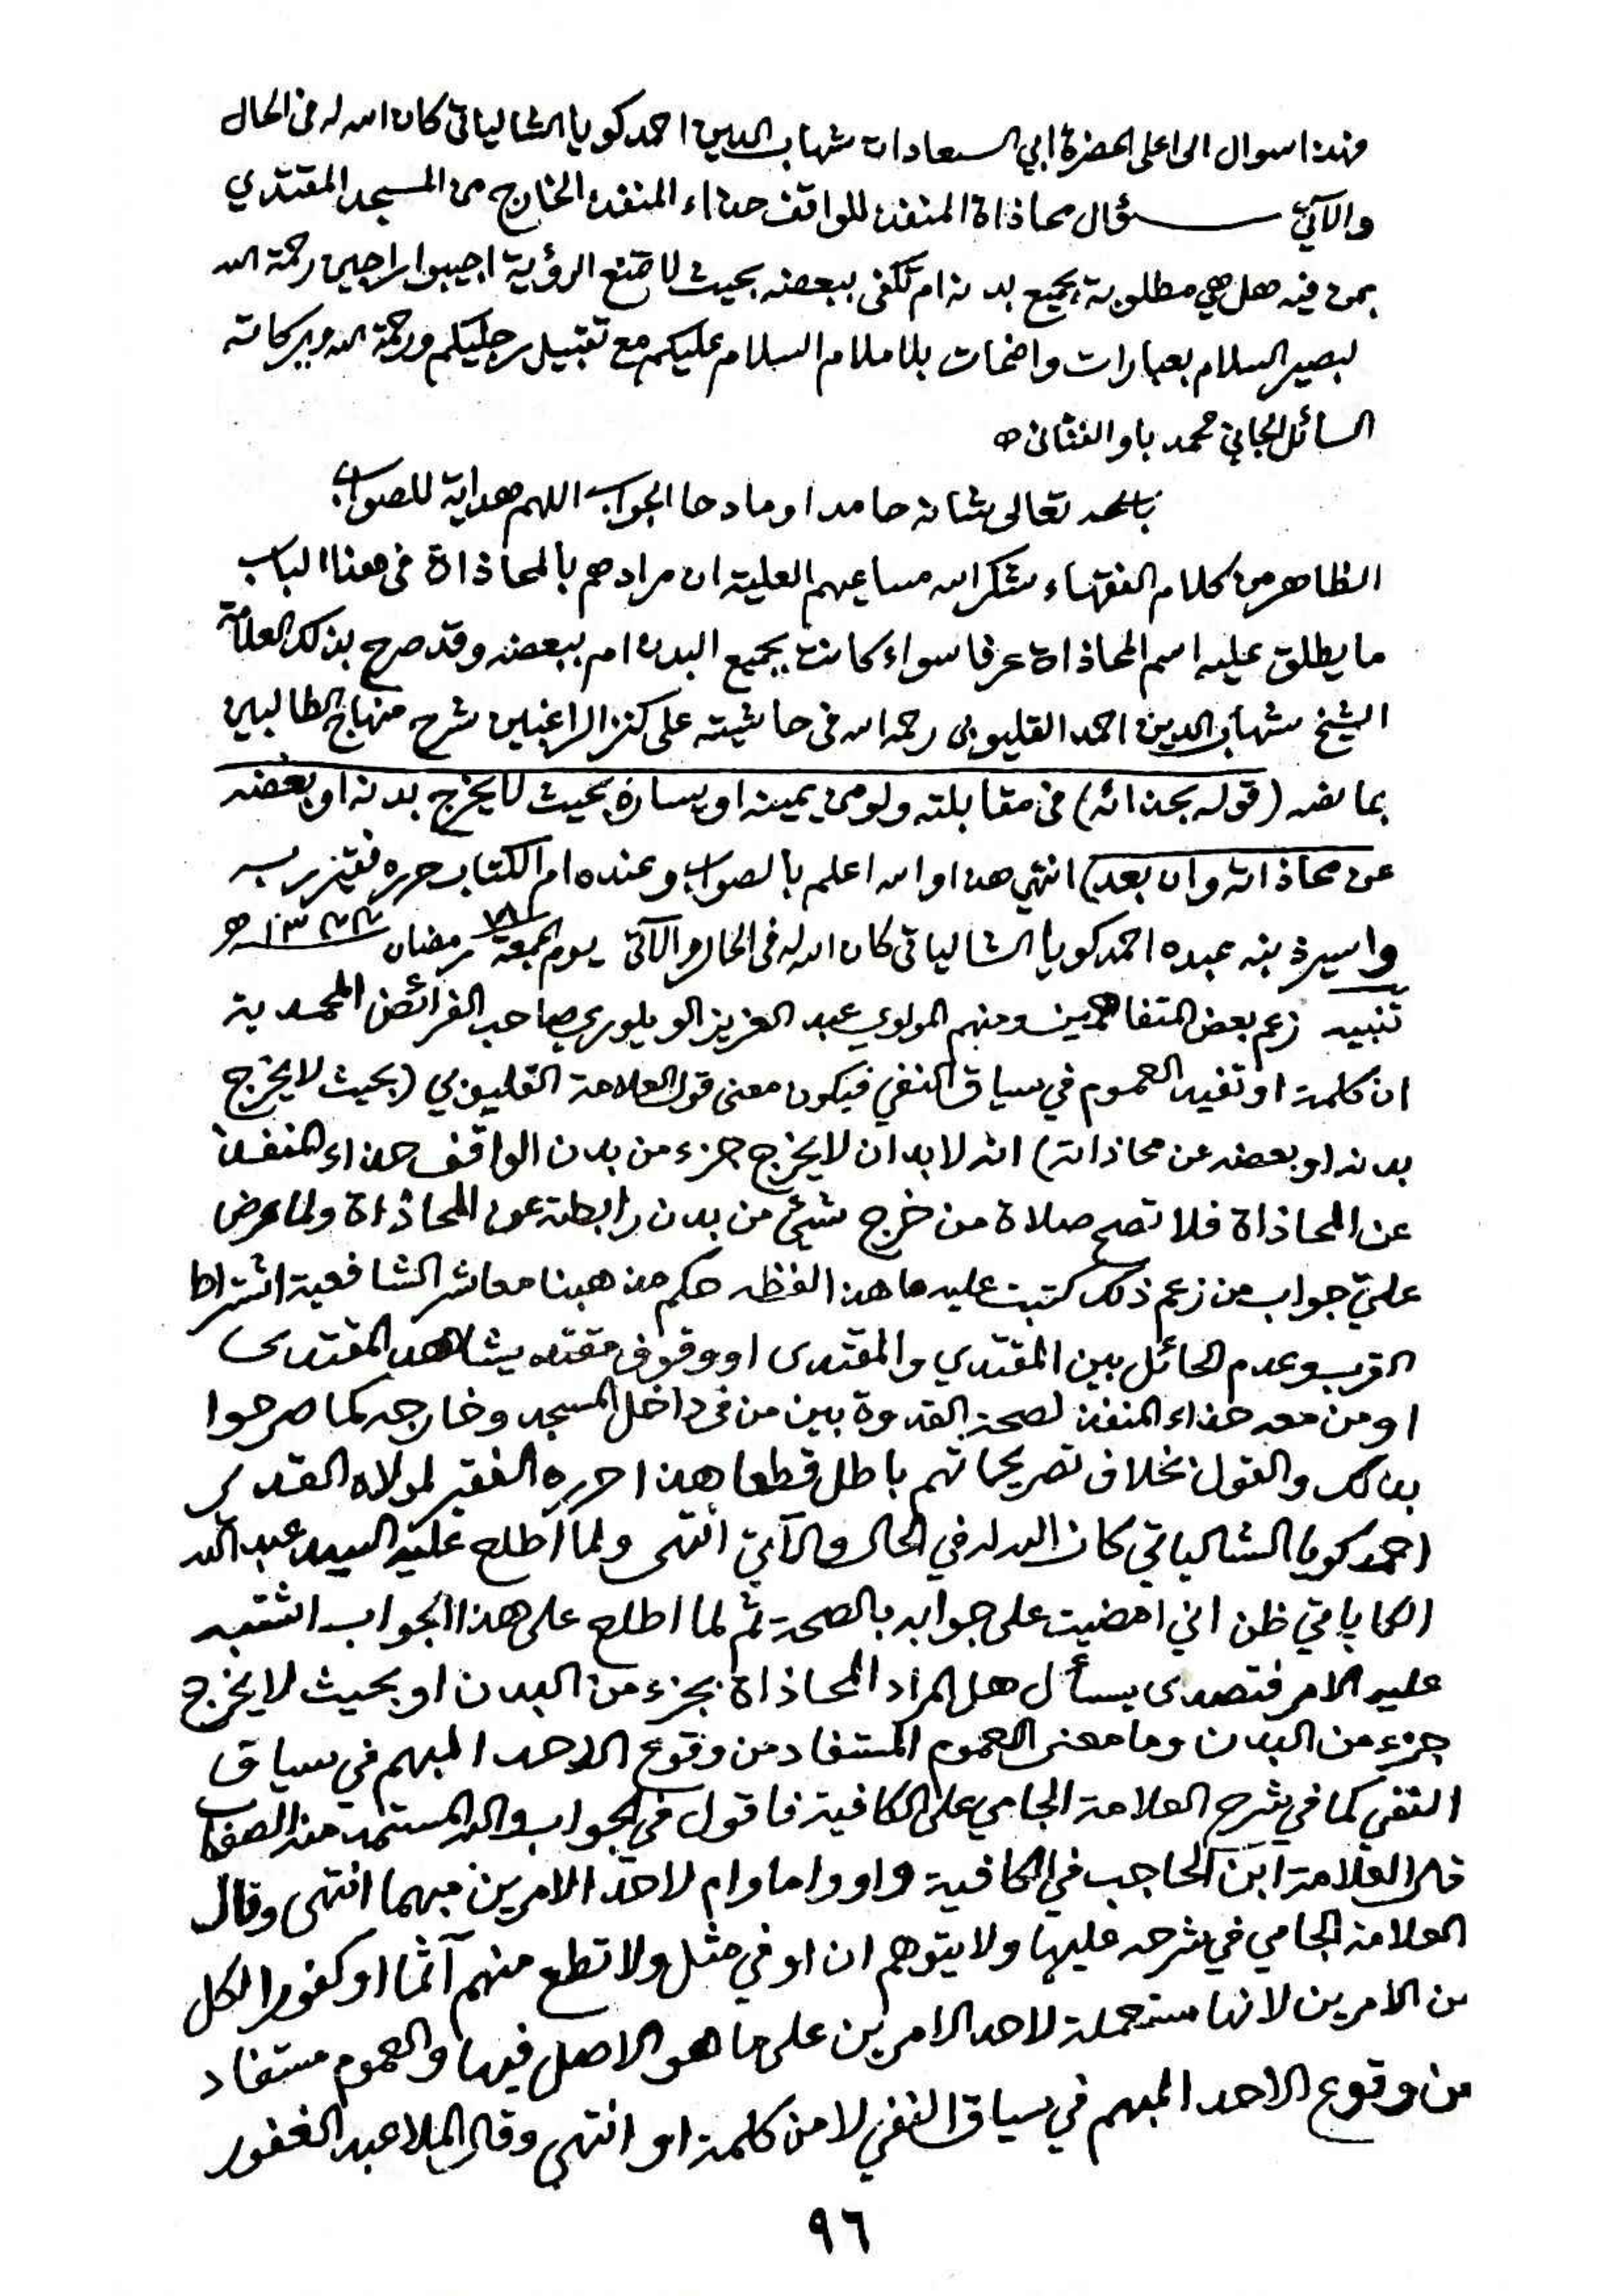 فهذا سوال الى اعلى الحضرة ابي السعادات شهاب الدين احمد كويا الشالياتى كان الله له فى الحال
والآتي سؤال محاذاة المنفذ للواقف حذاء المنفذ الخارج من المسجد المقتدي
بمن فيه هل هي مطلوبة بجميع بدنه ام تكفى ببعضه بحيث لا تمنع الرؤية اجيبوا راجين رحمة الله
لبصير السلام بعبارات واضحات بلا ملام السلام عليكم مع تقبيل رجليكم ورحمة الله وبركاته
السائل الجاني محمد باوا
تعالى شانه حامدا ومادحا الجواب اللهم هداية للصواب
الظاهر من كلام الفقهاء شكر الله مساعيهم العلية ان مرادهم بالمحاذاة فى هذا الباب
ما يطلق عليه اسم المحاذاة عرفا سواء كانت بجميع البدن ام ببعضه وقد صرح بذلك العلامة
الشيخ شهاب الدين احمد القليوبى رحمه الله فى حاشيته على كنز الراغبين شرح منهاج الطالبين
بما نصه (قوله بحذائه) فى مقابلته ولو من يمينه او يساره بحيث لا يخرج بدنه او بعضه
عن محاذاته وان بعد) انتهي هذا والله اعلم بالصواب وعنده ام الكتاب حرره فقير ربه
واسير ذنبه عبده احمد كويا الشالياتى كان الله له فى الحال والآتى يوم الجمعة رمضان
تنبيه زعم بعض المتفاهمين ومنهم المولوي عبد العزيز الويلوري صاحب الفرائض المحمدية
ان كلمة او تفيد العموم في سياق النفي فيكون معنى قول العلامة القليوبي (بحيث لا يخرج
بدنه او بعضه عن محاذاته) انه لا بد ان لا يخرج جزء من بدن الواقف حذاء المنفذ
عن المحاذاة فلا تصح صلاة من خرج شيئ من بدن رابطته عن المحاذاة ولما عرض
عليّ جواب من زعم ذلك كتبت عليه ما هذا لفظه حكم مذهبنا معاشر الشافعية اشتراط
القرب وعدم الحائل بين المقتدي والمقتدى او وقوف مقتد يشاهد المقتدى
او من معه حذاء المنفذ لصحة القدوة بين من فى داخل المسجد وخارجه كما صرحوا
بذلك والقول بخلاف تصريحاتهم باطل قطعا هذا حرره الفقير لمولاه القدير
احمد كويا الشالياتي كان الله له في الحال والآتي انتهى ولما اطلع عليه السيد عبد الله
الكاپاتي ظن اني امضيت على جوابه بالصحة ثم لما اطلع على هذا الجواب اشتبه
عليه الامر فتصدى يسأل هل المراد المحاذاة بجزء من البدن او بحيث لا يخرج
جزء من البدن وما معنى العموم المستفاد من وقوع الاحد المبهم في سياق
النفي كما في شرح العلامة الجامي على الكافية فاقول فى الجواب والله المستمد منه الصواب
قال العلامة ابن الحاجب في الكافية واو واما وام لاحد الامرين مبهما انتهى وقال
العلامة الجامي في شرحه عليها ولا يتوهم ان او في مثل ولا تطع منهم آثما او كفورا لكل
من الامرين لانها مستعملة لاحد الامرين على ما هو الاصل فيها والعموم مستفاد
من وقوع الاحد المبهم في سياق النفي لا من كلمة او انتهى وقال الملا عبد الغفور
٩٦